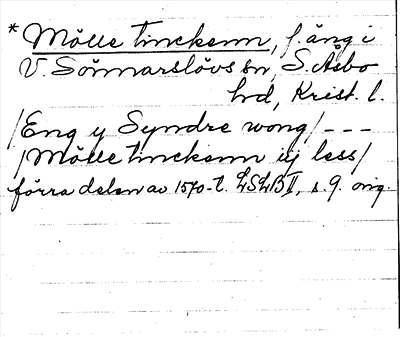 * Mölle tinckenn, f. äng i
V. Sönnarslövs sn, S. Åsbo
hd, Krist. l.
/Eng y Syndre wong/ ---
/Mölle tinckenn iij less/
förra delen av 1570-t. LSLB II, s. 9. orig.